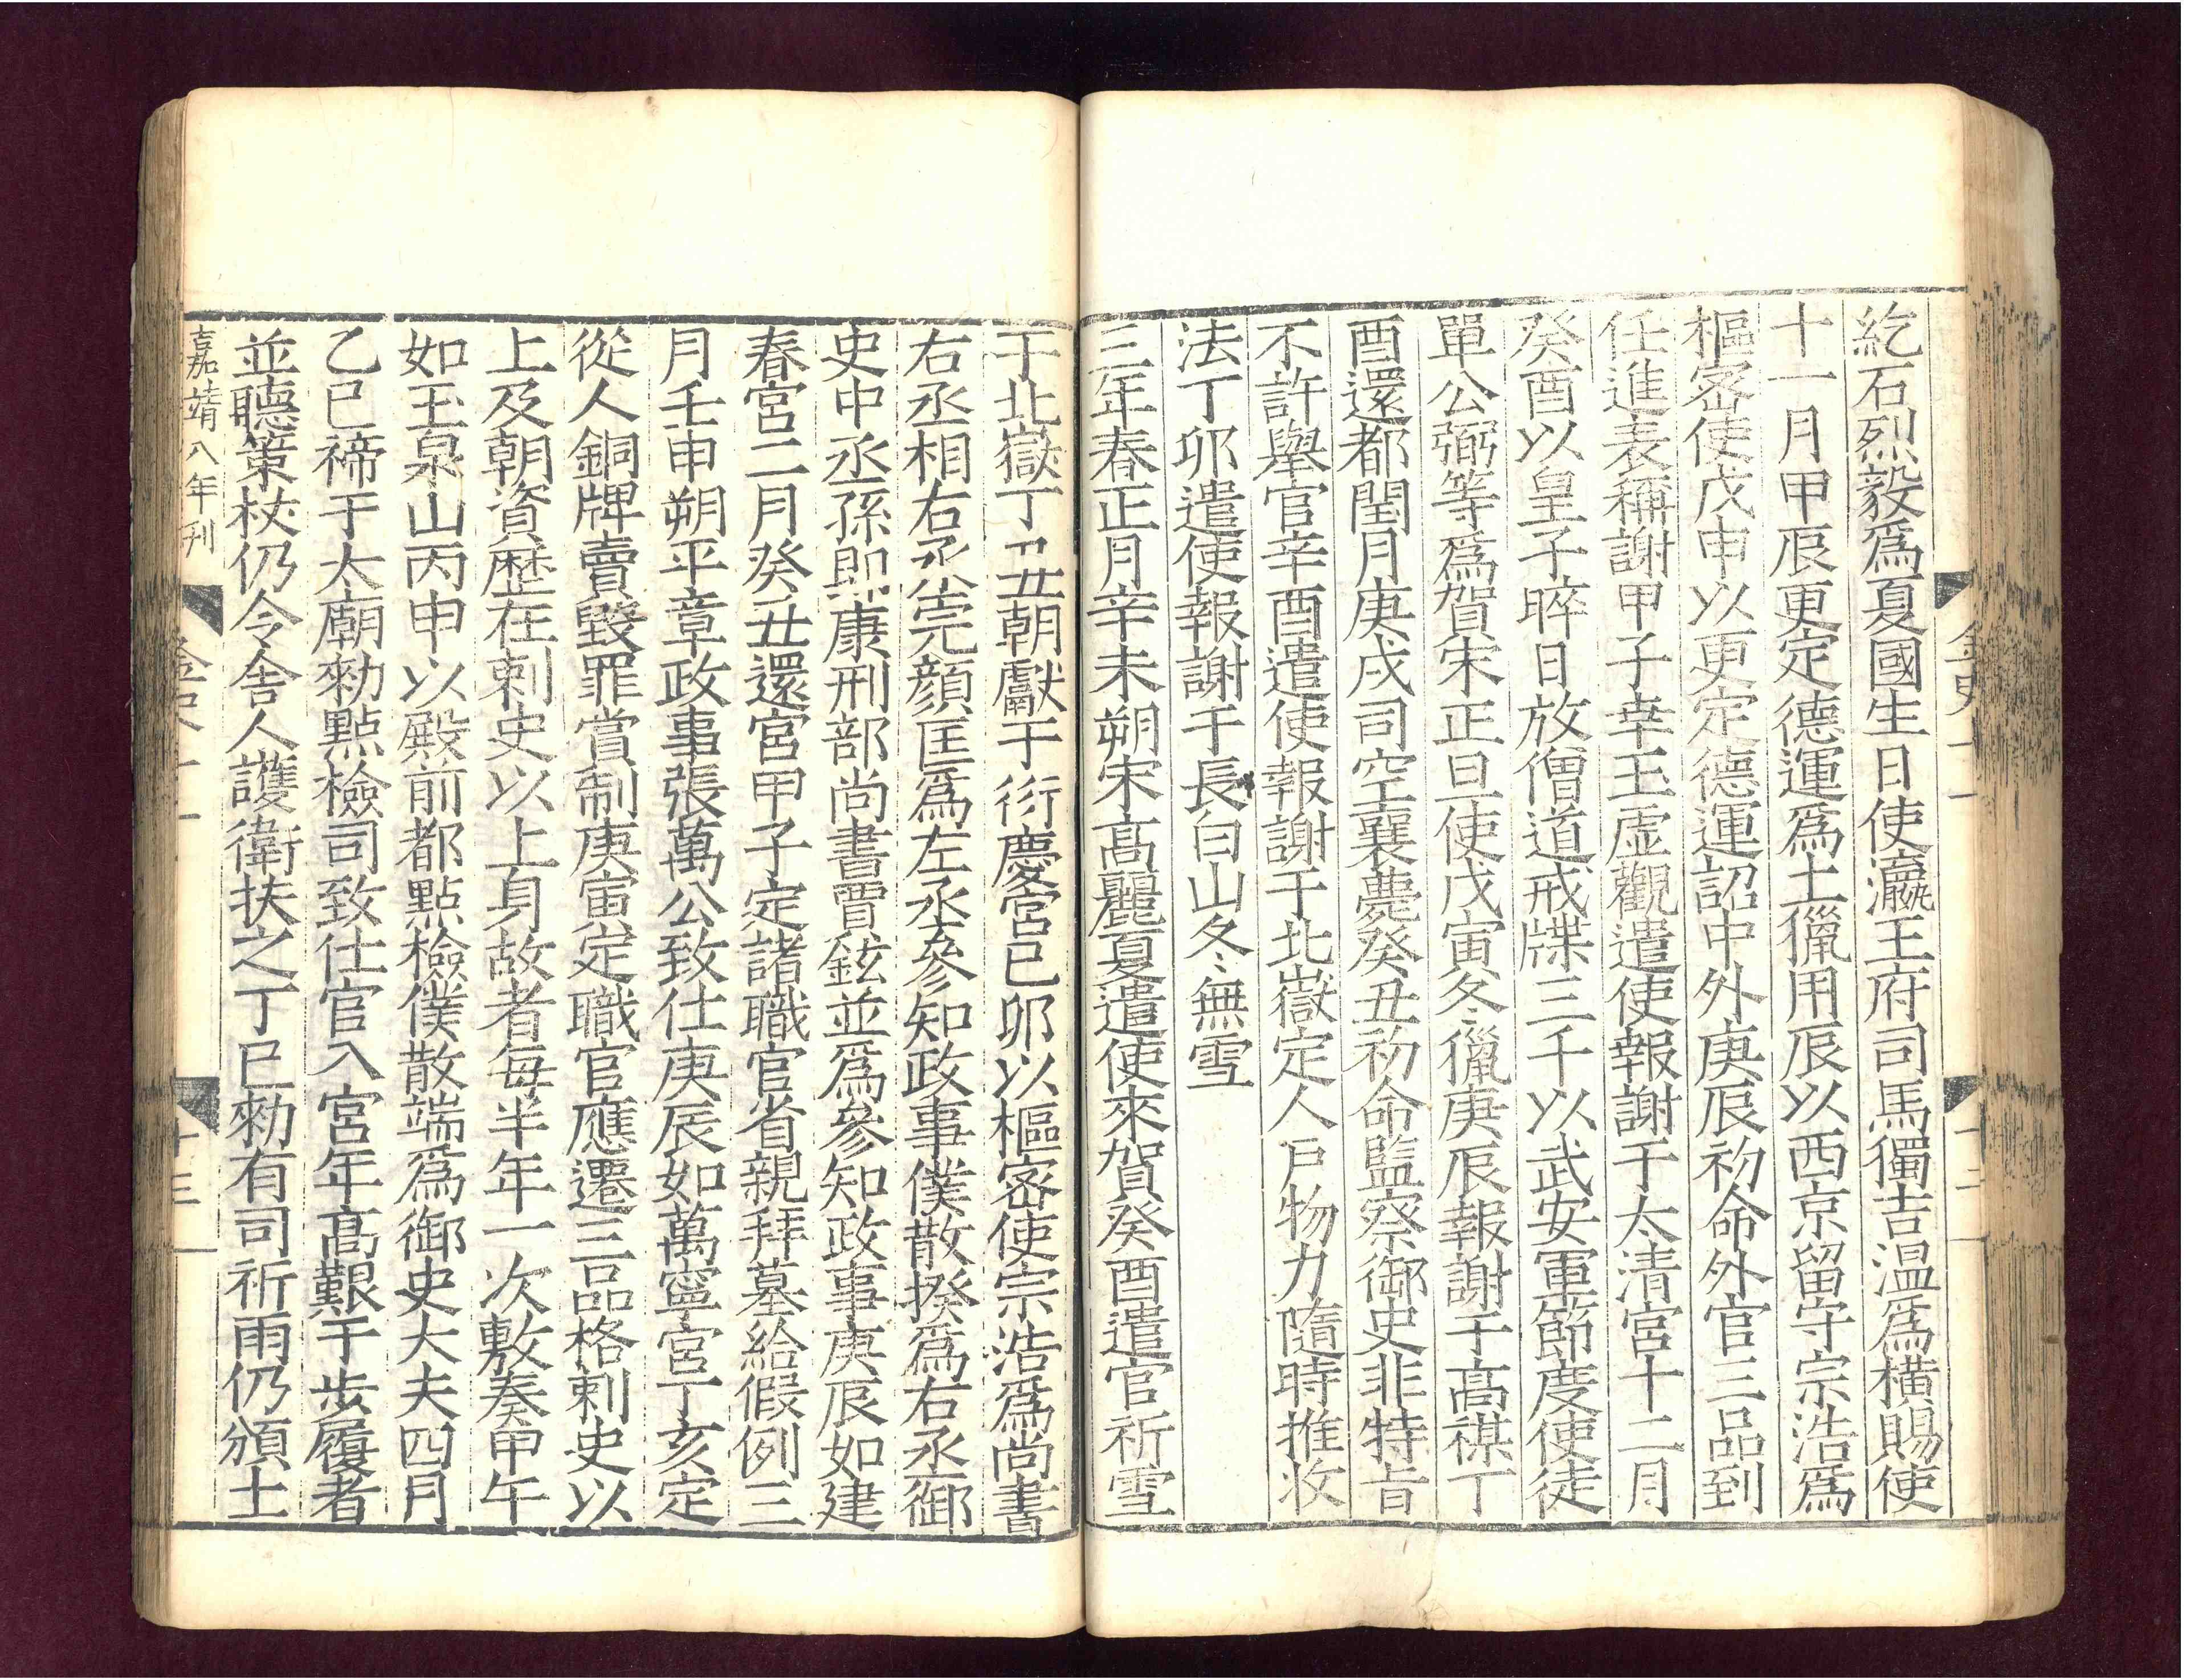 紇石烈毅爲夏國生日使瀛王府司馬獨吉溫爲橫賜使
十一月甲辰更定德運爲土獵用辰以西京留守宗浩爲
樞密使戊申以更定德運詔中外庚辰初命外官三品到
任進表稱謝甲子幸玉虛觀遣使報謝于太清宮十二月
癸酉以皇子晬日放僧道戒牒三千以武安軍節度使徒
單公弼等爲賀宋正旦使戊寅冬獵庚辰報謝于高禖丁
酉還都閏月庚戌司空襄薨癸丑初命監察御史非特旨
不許舉官辛酉遣使報謝于北嶽定人戶物力隨時推收
法丁卯遣使報謝于長白山冬無雪
三年春正月辛未朔宋高麗夏遣使來賀癸酉遣官祈雪
于北嶽丁丑朝獻于衍慶宮己卯以樞密使宗浩爲尚書
右丞相右丞完顏匡爲左丞參知政事僕散揆爲右丞御
史中丞孫即康刑部尚書賈鉉並爲參知政事庚辰如建
春宮二月癸丑還宮甲子定諸職官省親拜墓給假例三
月壬申朔平章政事張萬公致仕庚辰如萬寧宮丁亥定
從人銅牌賣毀罪賞制庚寅定職官應遷三品格刺史以
上及朝資歷在刺史以上身故者每半年一次敷奏甲午
如玉泉山丙申以殿前都點檢僕散端爲御史大夫四月
乙巳禘于太廟勑點檢司致仕官入宮年高艱于步履者
並聽策杖仍令舍人護衛扶之丁巳勑有司祈雨仍頒土
嘉靖八年刊
金史十一
十三